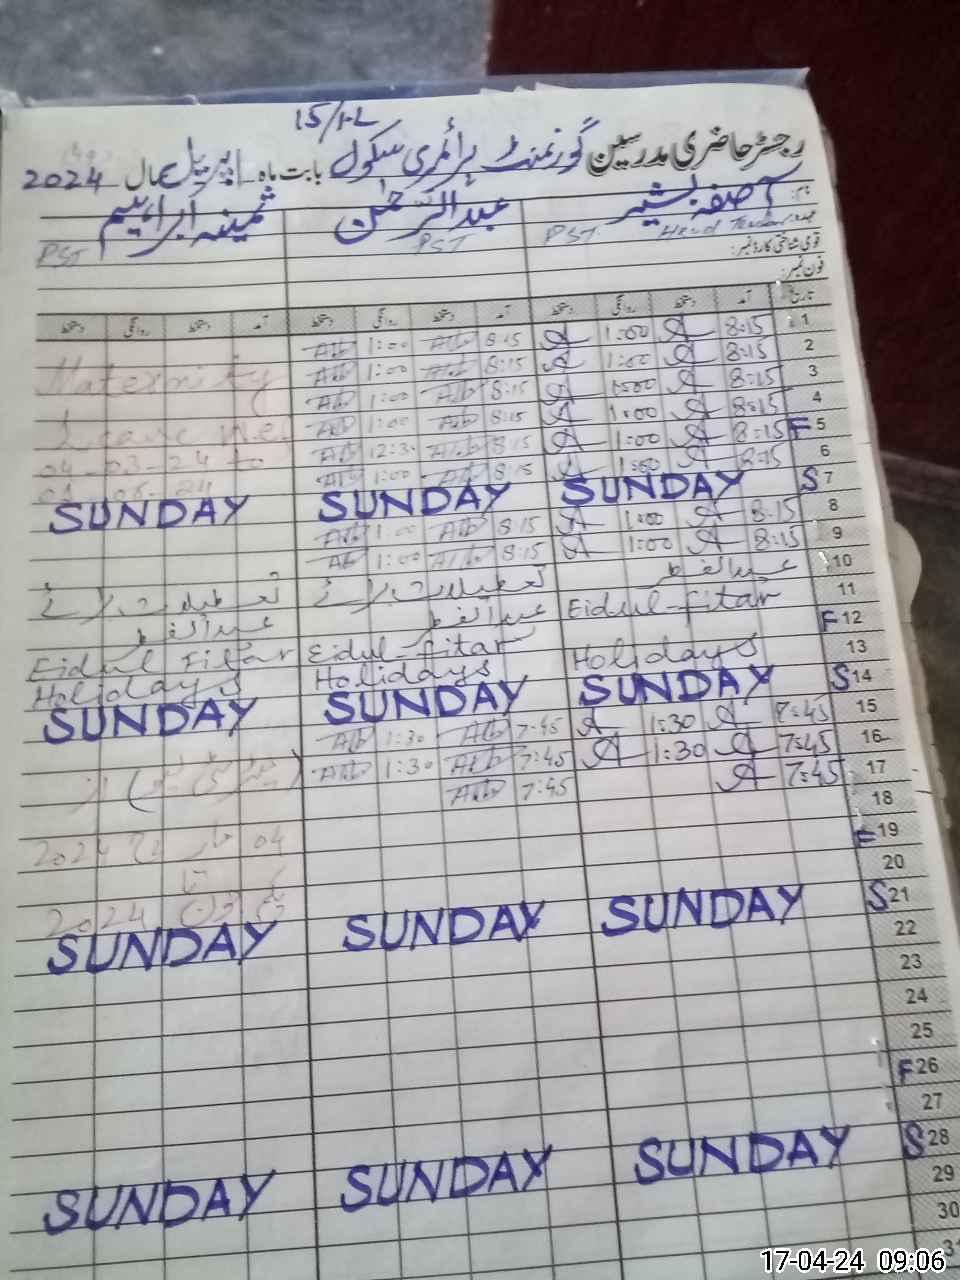 15/1-L
رجسٹر حاضری مدرسین گورنمنٹ پرائمری سکول بابت ماہ اپریل سال 2024
نام: آصفہ بشیر عبدالرحمٰن ثمینہ ابراہیم
عہدہ Head Teacher PST. PST PST
قومی شناختی کارڈ نمبر:
فون نمبر:
تاریخ آمد دستخط روانگی دستخط آمد دستخط روانگی دستخط آمد دستخط روانگی دستخط
1 8:15 A 1:00 A 8:15 Atb 1:00 Atb
2 8:15 A 1:00 A 8:15 Atb 1:00 Atb
3 8:15 A 1:00 A 8:15 Atb 1:00 Atb Maternity
4 8:15 A 1:00 A 8:15 Atb 1:00 Atb
F 5 8:15 A 1:00 A 8:15 Atb 12:30 Atb Leave
6 8:15 A 1:00 A 8:15 Atb 1:00 Atb 04-03-24 to
S 7 SUNDAY SUNDAY SUNDAY
8 8:15 A 1:00 A 8:15 Atb 1:00 Atb
9 8:15 A 1:00 A 8:15 Atb 1:00 Atb
10 عیدالفطر تعطیلات برائے تعطیلات برائے
11 Eidul-fitar عیدالفطر عیدالفطر
F 12 Eidul-fitar Eidul Fitar
13 Holidays Holidays Holidays
S 14 SUNDAY SUNDAY SUNDAY
15 7:45 A 1:30 A 7:45 Atb 1:30 Atb
16 7:45 A 1:30 A 7:45 Atb 1:30 Atb
17 7:45 A 7:45 Atb
18
F 19 04 مارچ 2024
20 2024
S 21 SUNDAY SUNDAY SUNDAY
22
23
24
25
F 26
27
S 28 SUNDAY SUNDAY SUNDAY
29
30
31
17-04-24 09:06